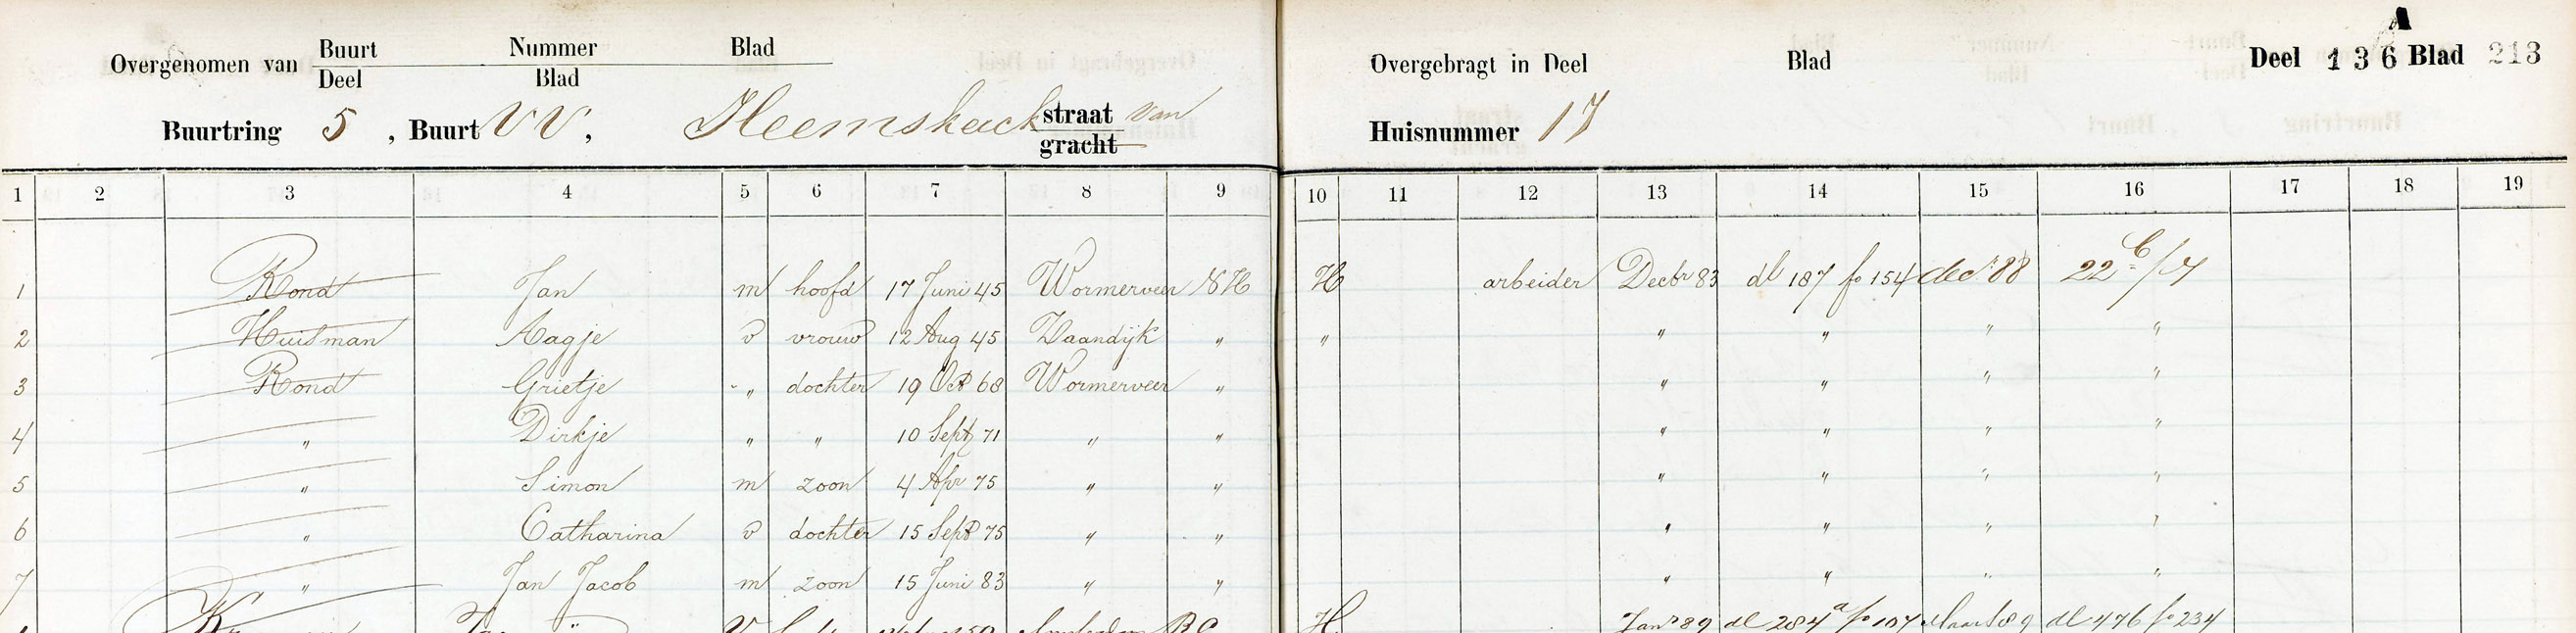 Overgenomen van Buurt Nummer Blad
Deel Blad
Buurtring 5, Buurt VV, Heemskerck straat van
gracht
Overgebragt in Deel Blad Deel 136 Blad 213
A
Huisnummer 17
1 2 3 4 5 6 7 8 9 10 11 12 13 14 15 16 17 18 19
1 Rond Jan m hoofd 17 Juni 45 Wormerveer NH H arbeider Decbr 83 dl 187 fo 154 dec. 88
2 Huisman Aagje v vrouw 12 Aug 45 Zaandijk " " " " " "
3 Rond Grietje " dochter 19 Oct 68 Wormerveer " " " " "
4 " Dirkje " " 10 Sept 71 " " " " " "
5 " Simon m zoon 4 Apr 75 " " " " " "
6 " Catharina v dochter 15 Sept 75 " " " " " "
7 " Jan Jacob m zoon 15 Juni 83 " " " " " "
H Janr 89 dl 284a fo 107 Maart 89 dl 476 fo 234